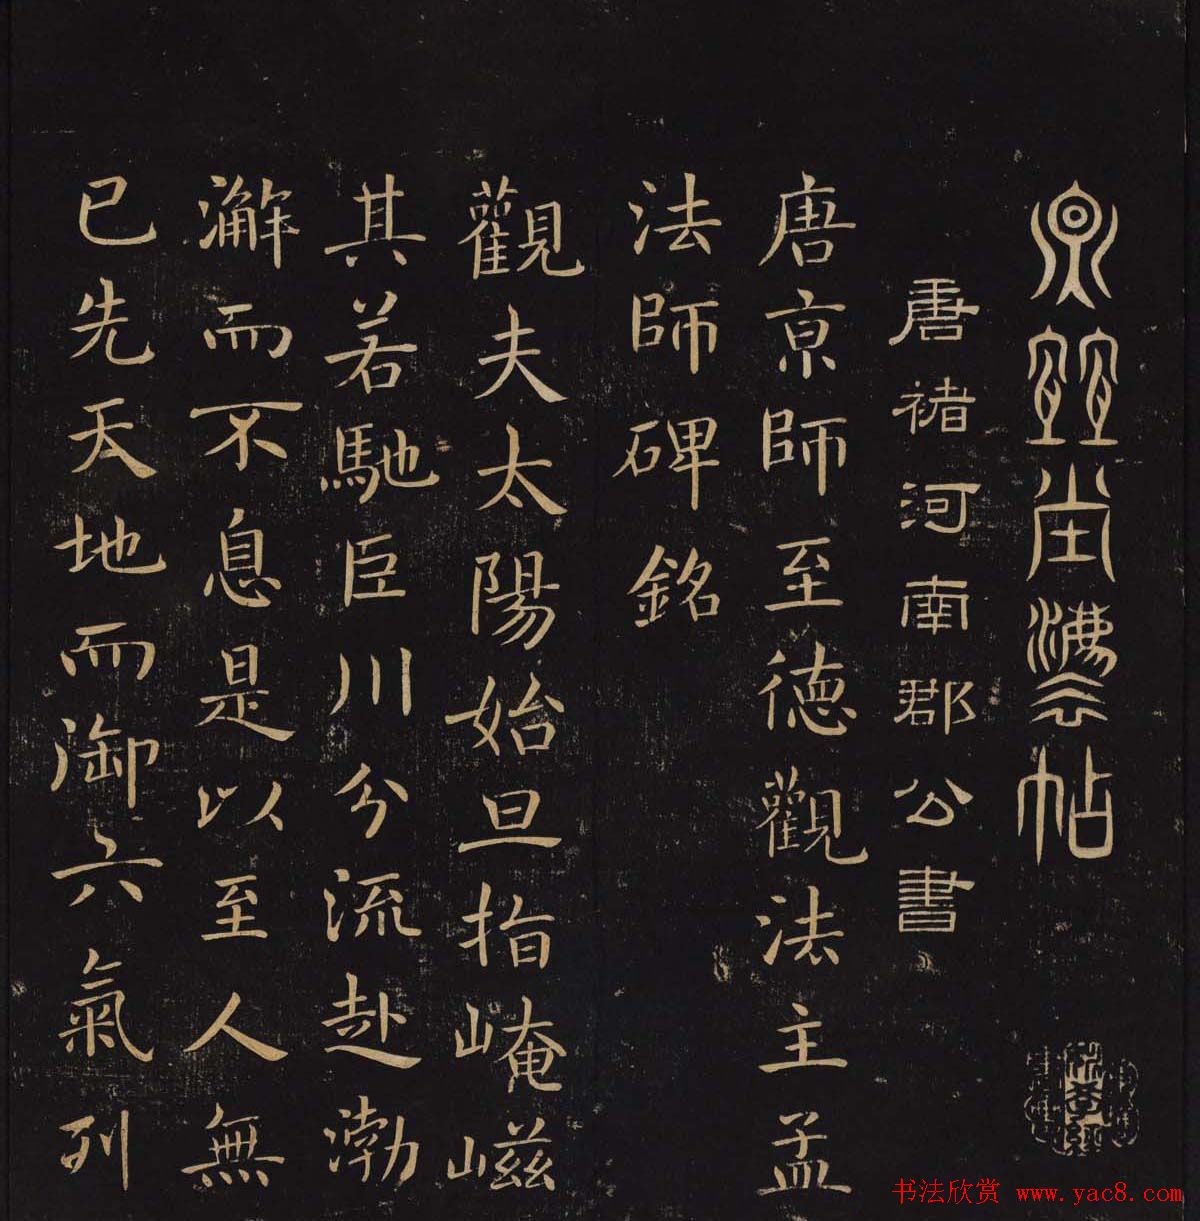 堂灋帖
唐褚河南郡公書
唐亰師至德觀法主孟
法師碑銘
觀夫太陽始旦指崦嵫
其若馳巨川分流赴渤
澥而不息是以至人無
已先天地而御六氣列
书法欣赏 www.yac8.com